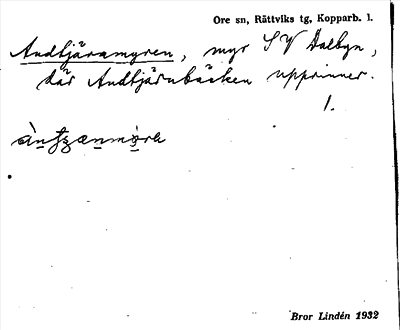 Ore sn, Rättviks tg, Kopparb. l.
Andtjärnmyren, myr SV Dalbyn,
där Andtjärnbäcken upprinner.
1.
Bror Lindén 1932